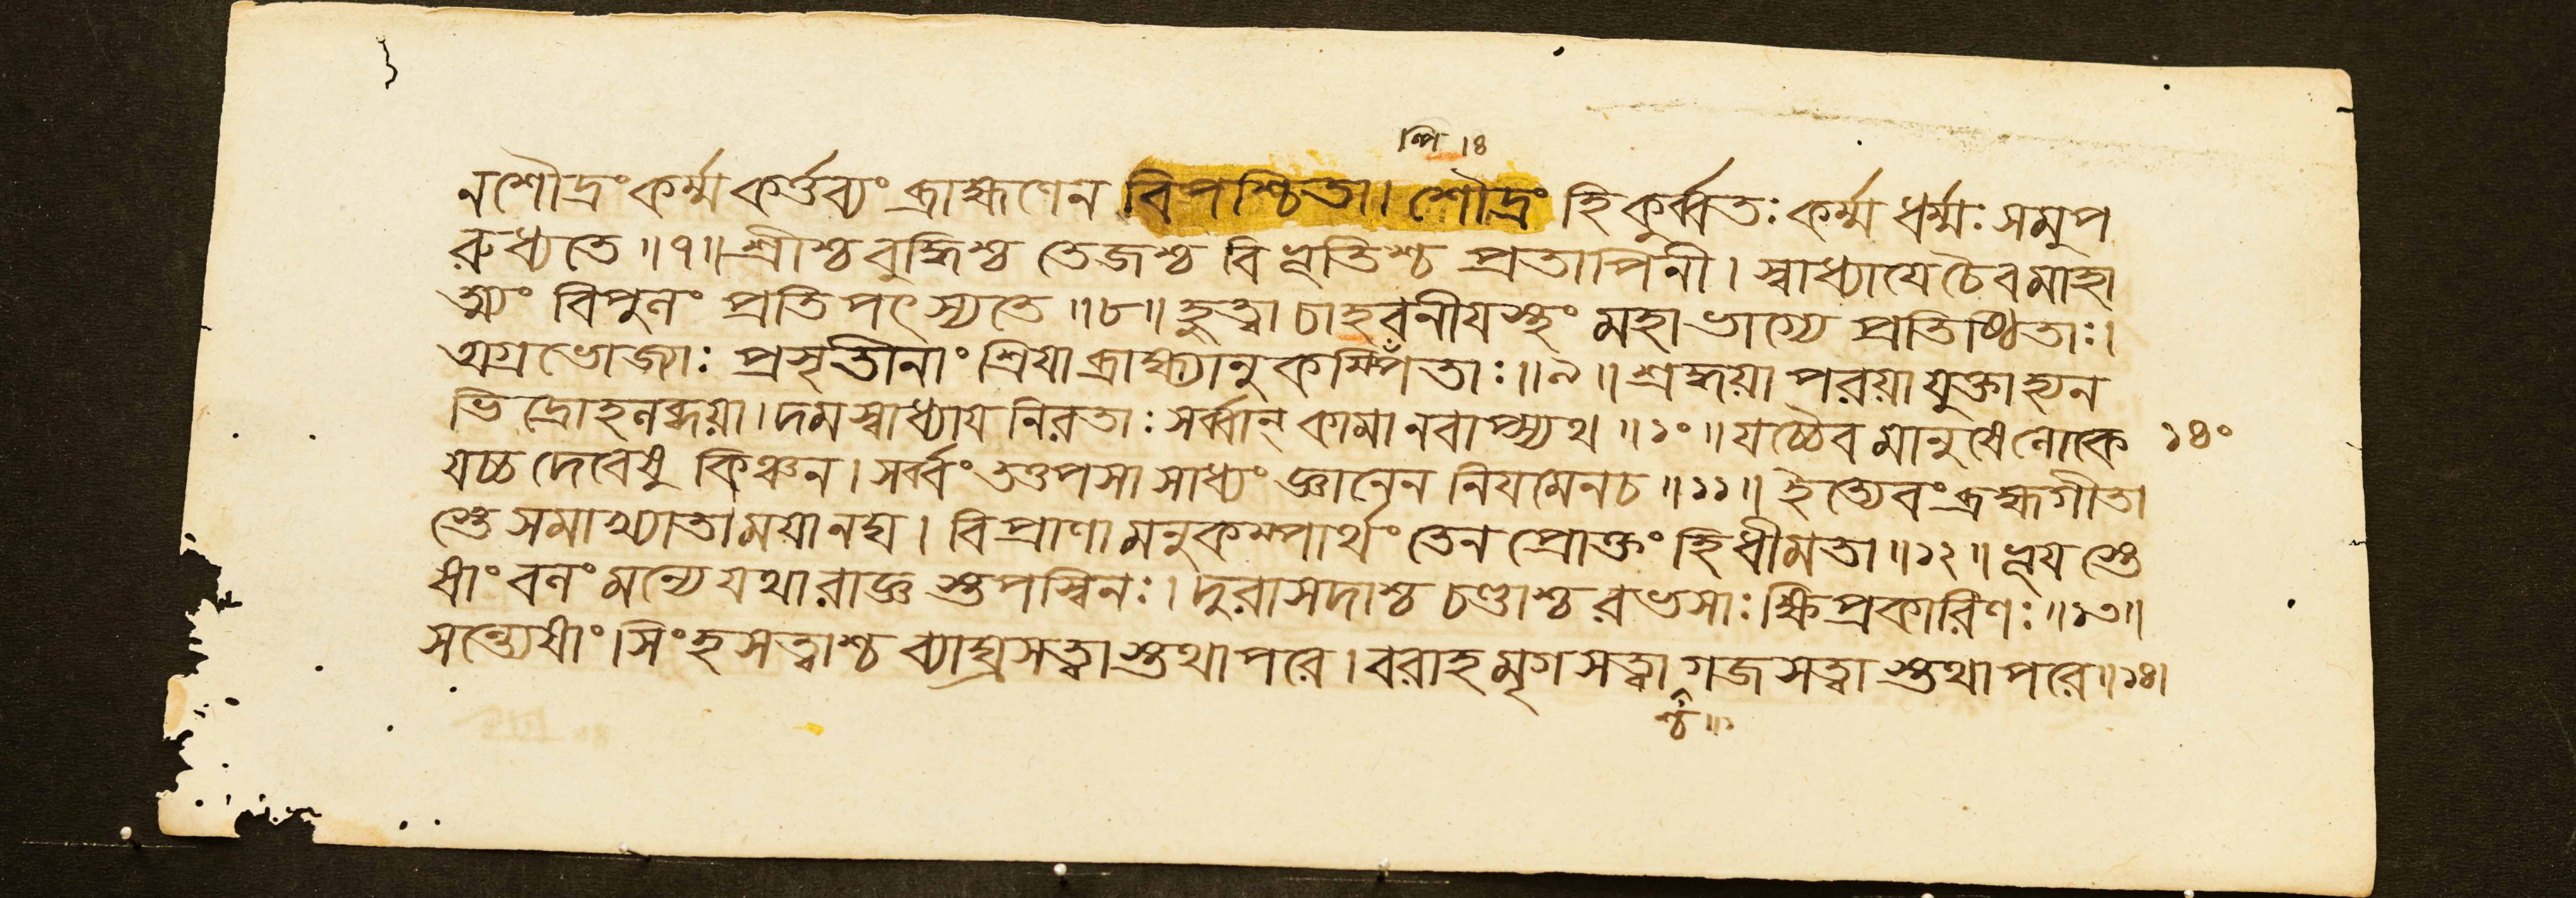 ল্পি ।৪
ন শৌদ্রং কর্ম্ম কর্ত্তব্যং ব্রাহ্মণেন বিপশ্চিতা। শৌদ্রং হি কুর্ব্বতঃ কর্ম্ম ধর্ম্মঃ সমুপ
রুধ্যতে ॥৭॥ শ্রীশ্চ বুদ্ধিশ্চ তেজশ্চ বিভূতিশ্চ প্রতাপিনী। স্বাধ্যাযে চৈব মাহা
ত্ম্যং বিপুলং প্রতিপৎস্যতে ॥৮॥ হুত্বা চাহবনীযস্থং মহাভাগ্যে প্রতিষ্ঠিতাঃ।
অগ্রভোজ্যাঃ প্রসূতীনাং শ্রিযা ব্রাহ্ম্যানুকম্পিতাঃ ॥৯॥ শ্রদ্ধয়া পরয়া যুক্তা হ্যন
ভিদ্রোহলব্ধয়া। দমস্বাধ্যায নিরতাঃ সর্ব্বান্ কামানবাপ্স্যথ ॥১০॥ যচ্চৈব মানুষে লোকে ১৪০
যচ্চ দেবেষু কিঞ্চন। সর্ব্বং তত্তপসা সাধ্যং জ্ঞানেন নিযমেন চ ॥১১॥ ইত্যেবং ব্রহ্মগীতা
স্তে সমাখ্যাতা ময়ানঘ। বিপ্রাণামনুকম্পার্থং তেন প্রোক্তং হি ধীমতা ॥১২॥ ভূযস্তে
ষাং বলং মন্যে যথা রাজ্ঞস্তপস্বিনঃ। দুরাসদাশ্চ চণ্ডাশ্চ রভসাঃ ক্ষিপ্রকারিণঃ ॥১৩॥
সন্ত্যেষাং সিংহসত্ত্বাশ্চ ব্যাঘ্রসত্ত্বাস্তথাপরে। বরাহমৃগসত্ত্বা গজসত্ত্বাস্তথাপরে ॥১৪।